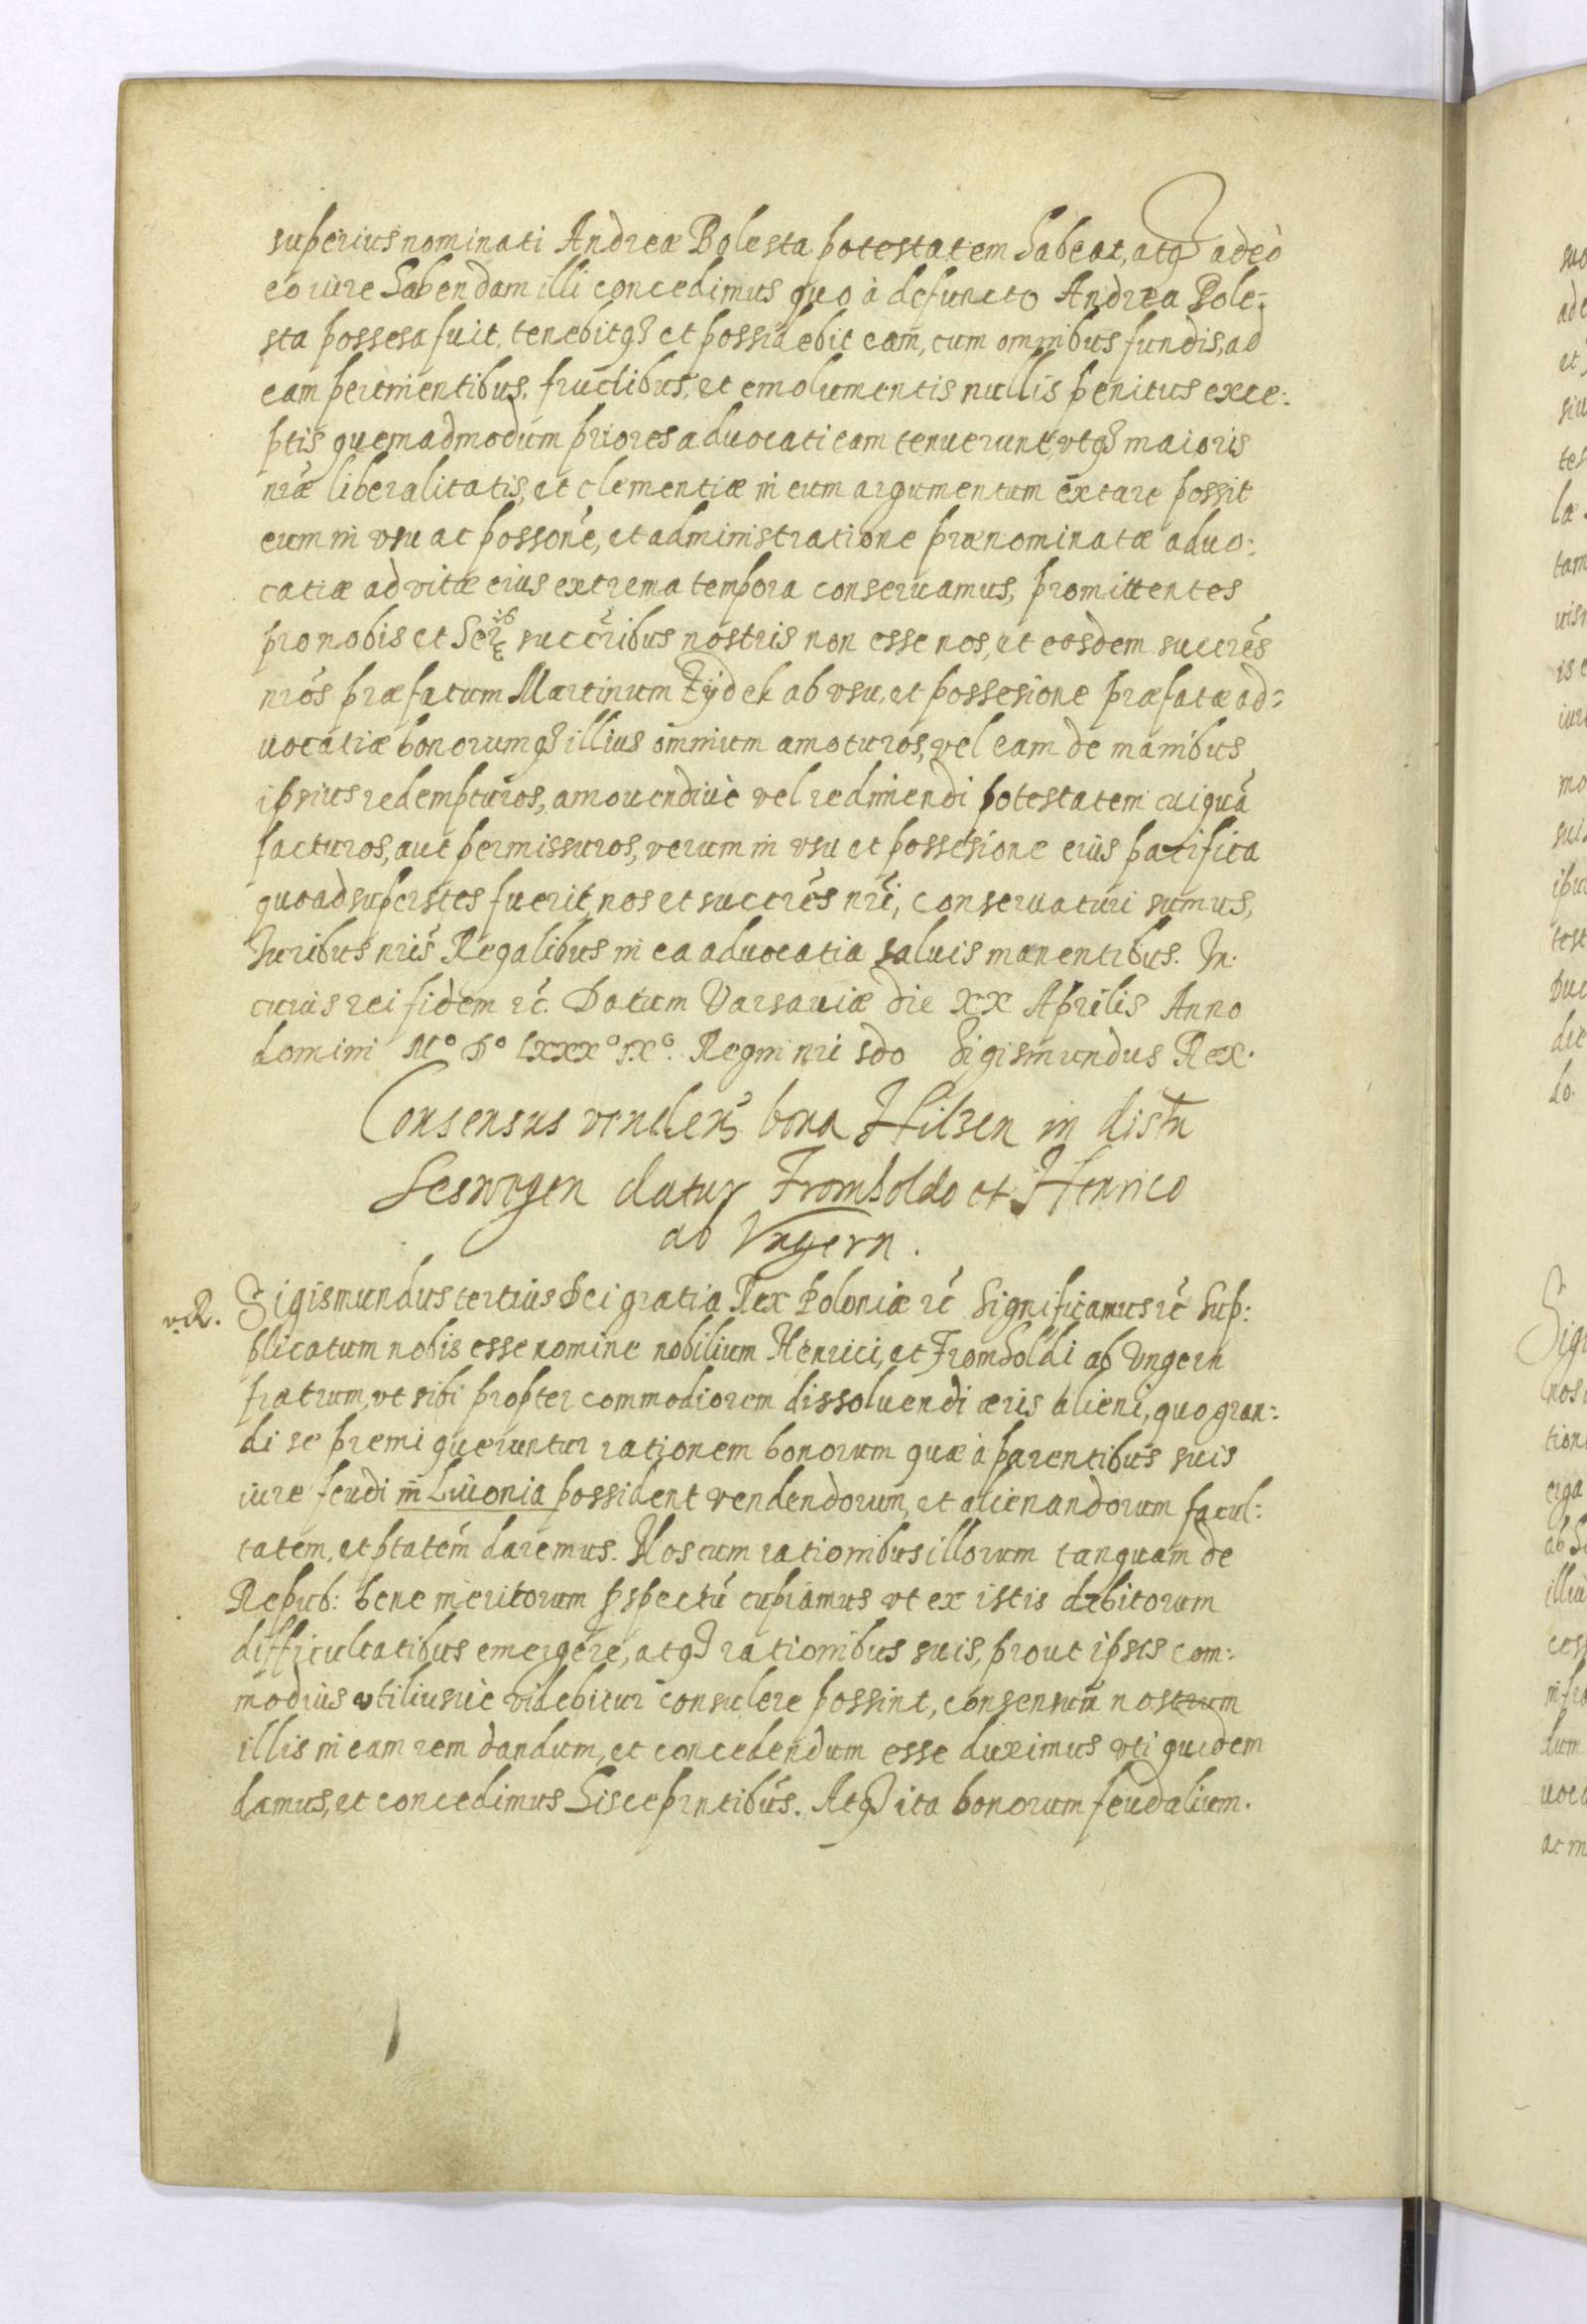 superius nominati Andreæ Bolesta potestatem habeat, atq3 adeò
eo iure habendam illi concedimus quo à defuncto Andrea Bole-
sta possesa fuit, tenebitq3 et possidebit eam, cum omnibus fundis, ad
eam pertinentibus, fructibus, et emolumentis nullis penitus exce:
ptis quemadmodum priores advocati eam tenuerunt, vtq3 maioris
nræ liberalitatis, et clementiæ in eum argumentum extare possit
eum in vsu ac possone, et administratione prænominatæ advo:
catiæ ad vitæ eius extrema tempora conseruamus, promittentes
pro nobis et Ser succribus nostris non esse nos, et eosdem succres
nros præfatum Martinum Zÿdek ab vsu, et possesione præfatæ ad:
uocatiæ bonorumq3 illius omnium amoturos, vel eam de manibus
ipsius redempturos, amouendiuè vel redimendi potestatem cuiquã
facturos, aut permissuros, verum in vsu et possesione eius pacifica
quoad superstes fuerit, nos et succres nri, conseruaturi sumus,
Iuribus nris Regalibus in ea aduocatia saluis manentibus. In.
cuius rei fidem rc. Datum Varsauiæ die XX Aprilis Anno
domini Mo Do LXXXo IXo. Regni nri sdo Sigismundus Rex.
Consensus venden3 bona Hilzen in distu
Seswegen datur Fromholdo et Henrico
ab Vngern.
v.R. Sigismundus tertius Dei gratia Rex Poloniæ rc Significamus rc Sup:
plicatum nobis esse nomine nobilium Henrici, et Fromholdi ab Vngern
fratrum, vt sibi propter commodiorem dissoluendi æris alieni, quo gran:
di se premi queruntur rationem bonorum quæ à parentibus suis
iure feudi in Liuonia possident vendendorum, et alienandorum facul:
tatem, et ptatem daremus. Nos cum rationibus illorum tanquam de
Repub: bene meritorum pspectũ cupiamus vt ex istis debitorum
difficultatibus emergere, atq3 rationibus suis, prout ipsis com:
modius vtiliusuè videbitur consulere possint, consensum nostrum
illis in eam rem dandum, et concedendum esse duximus vti quidem
damus, et concedimus hisce prntibus. Atq3 ita bonorum feudalium.